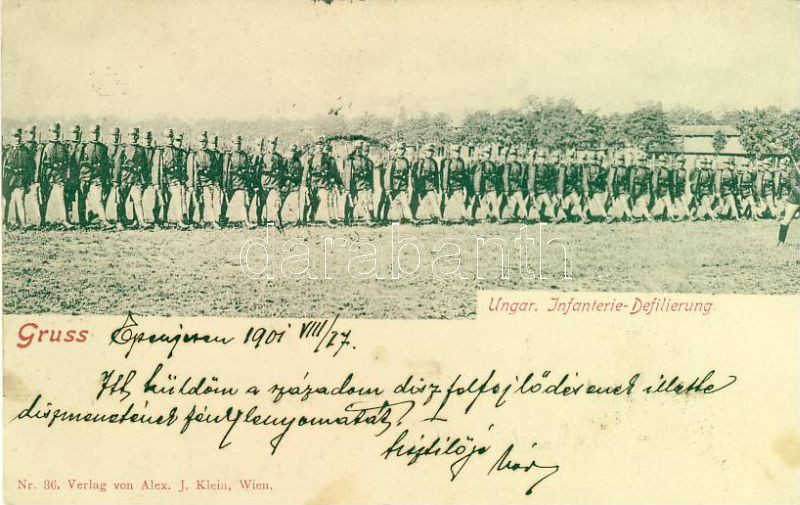 darabanth
Ungar. Infanterie-Defilierung.
Gruss
Eperjesen 1901 VIII/27.
Itt küldöm a századom disz felfejlődésének illetve
diszmenetének fényképlenyomatát.
tisztelője
Nr. 36. Verlag von Alex. J. Klein, Wien.